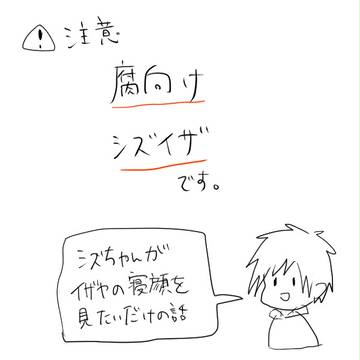 ⚠ 注意
腐向け
シズイザ
です。
シズちゃんが
イザヤの寝顔を
見たいだけの話